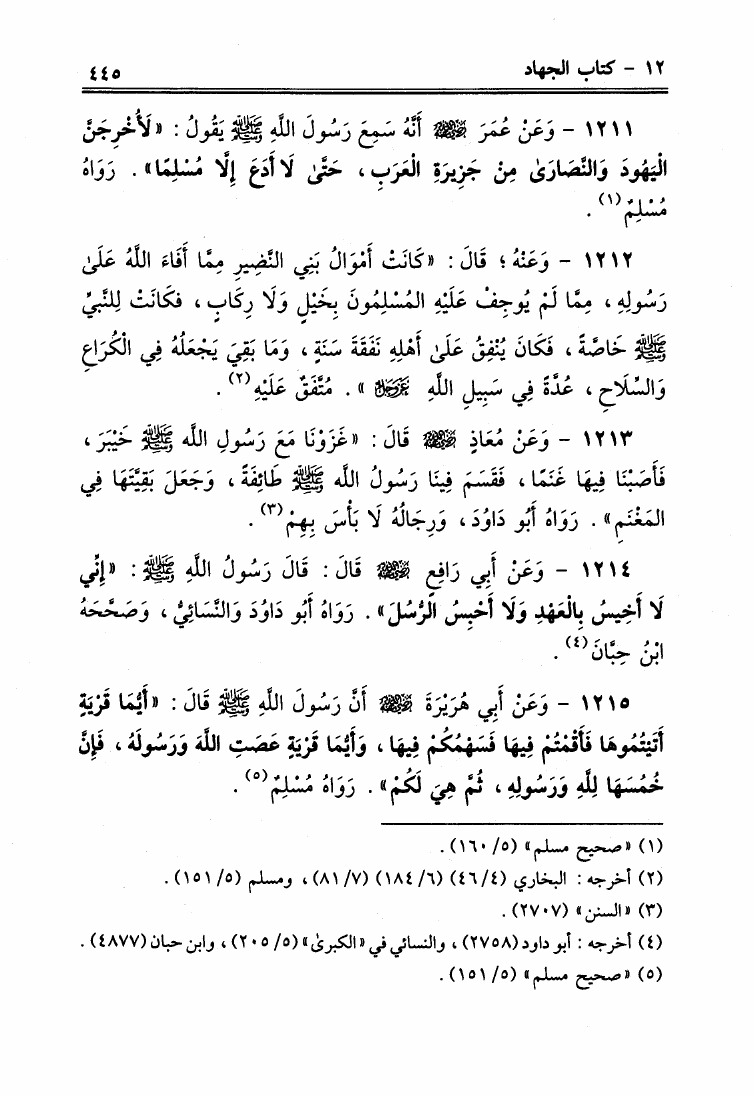 ١٢ - كتاب الجهاد
٤٤٥
١٢١١ - وَعَنْ عُمَرَ رضي الله عنه أَنَّهُ سَمِعَ رَسُولَ اللَّهِ ﷺ يَقُولُ : «لَأُخْرِجَنَّ
الْيَهُودَ وَالنَّصَارَىٰ مِنْ جَزِيرَةِ الْعَرَبِ ، حَتَّىٰ لَا أَدَعَ إِلَّا مُسْلِمًا» . رَوَاهُ
مُسْلِمٌ(١) .
١٢١٢ - وَعَنْهُ ؛ قَالَ : «كَانَتْ أَمْوَالُ بَنِي النَّضِيرِ مِمَّا أَفَاءَ اللَّهُ عَلَىٰ
رَسُولِهِ ، مِمَّا لَمْ يُوجِفْ عَلَيْهِ المُسْلِمُونَ بِخَيْلٍ وَلَا رِكَابٍ ، فكَانَتْ لِلنَّبِيِّ
ﷺ خَاصَّةً ، فَكَانَ يُنْفِقُ عَلَىٰ أَهْلِهِ نَفَقَةَ سَنَةٍ ، وَمَا بَقِيَ يَجْعَلُهُ فِي الْكُرَاعِ
وَالسِّلَاحِ ، عُدَّةً فِي سَبِيلِ اللَّهِ عز وجل » . مُتَّفَقٌ عَلَيْهِ(٢) .
١٢١٣ - وَعَنْ مُعَاذٍ رضي الله عنه قَالَ : «غَزَوْنَا مَعَ رَسُولِ الله ﷺ خَيْبَرَ ،
فَأَصَبْنَا فِيهَا غَنَمًا ، فَقَسَمَ فِينَا رَسُولُ الله ﷺ طَائِفَةً ، وَجَعَلَ بَقِيَّتَهَا فِي
المَغْنَمِ» . رَوَاهُ أَبُو دَاوُدَ ، وَرِجَالُهُ لَا بَأْسَ بِهِمْ(٣) .
١٢١٤ - وَعَنْ أَبِي رَافِعٍ رضي الله عنه قَالَ : قَالَ رَسُولُ اللَّهِ ﷺ : «إِنِّي
لَا أَخِيسُ بِالْعَهْدِ وَلَا أَحْبِسُ الرُّسُلَ» . رَوَاهُ أَبُو دَاوُدَ وَالنَّسَائِيُّ ، وَصَحَّحَهُ
ابْنُ حِبَّانَ(٤) .
١٢١٥ - وَعَنْ أَبِي هُرَيْرَةَ رضي الله عنه أَنَّ رَسُولَ اللَّهِ ﷺ قَالَ : «أَيُّمَا قَرْيَةٍ
أَتَيْتُمُوهَا فَأَقَمْتُمْ فِيهَا فَسَهْمُكُمْ فِيهَا ، وَأَيُّمَا قَرْيَةٍ عَصَتِ اللَّهَ وَرَسُولَهُ ، فَإِنَّ
خُمُسَهَا لِلَّهِ وَرَسُولِهِ ، ثُمَّ هِيَ لَكُمْ» . رَوَاهُ مُسْلِمٌ(٥) .
(١) «صحيح مسلم» (٥/ ١٦٠) .
(٢) أخرجه : البخاري (٤/ ٤٦) (٦/ ١٨٤) (٧/ ٨١) ، ومسلم (٥/ ١٥١) .
(٣) «السنن» (٢٧٠٧) .
(٤) أخرجه : أبو داود (٢٧٥٨) ، والنسائي في «الكبرىٰ» (٥/ ٢٠٥) ، وابن حبان (٤٨٧٧) .
(٥) «صحيح مسلم» (٥/ ١٥١) .